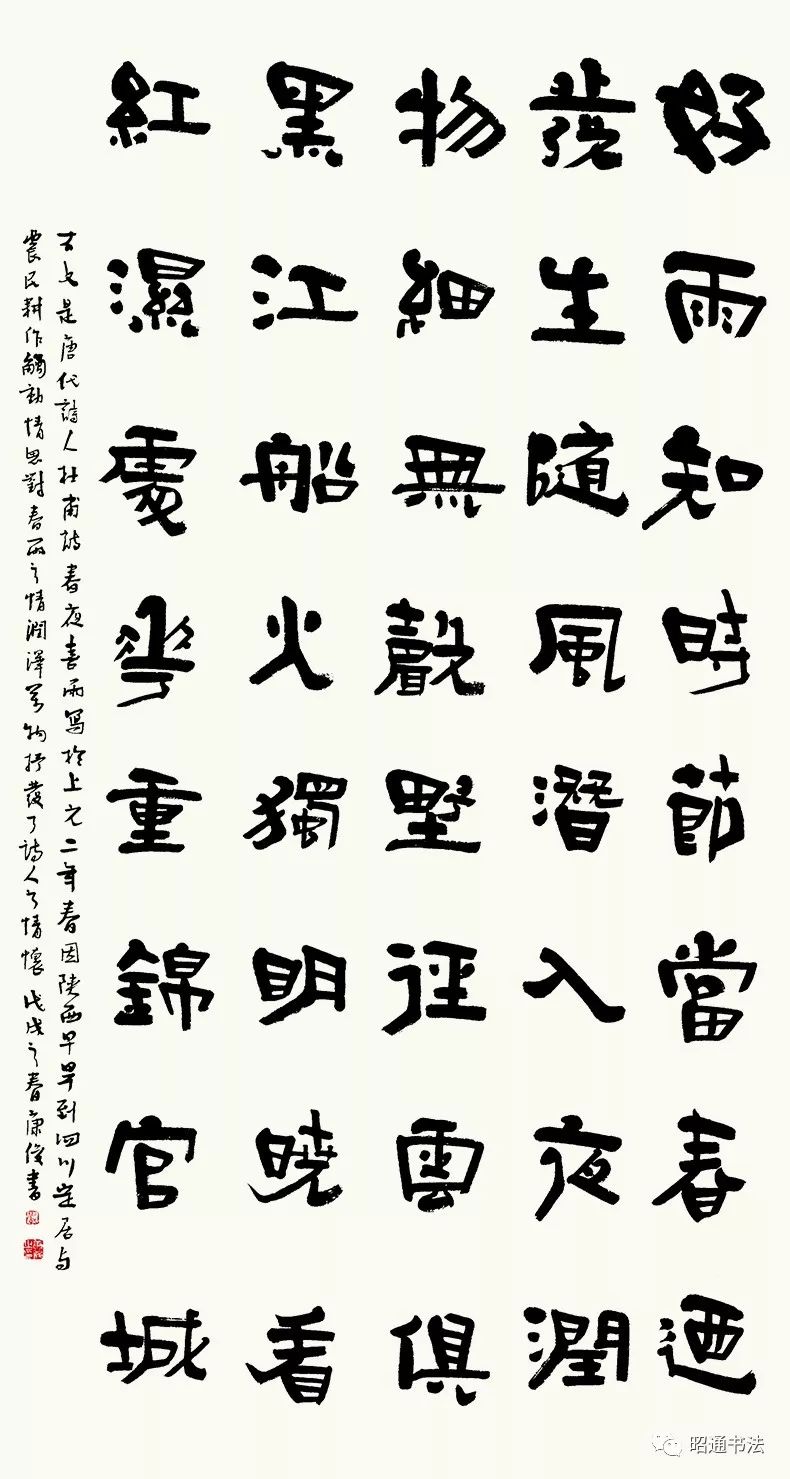 好雨知時節當春迺
發生隨風潛入夜潤
物細無聲野徑雲俱
黑江船火獨明曉看
紅濕處花重錦官城
古七是唐代詩人杜甫詩春夜喜雨寫於上元二年春因陝西旱早到四川定居与
農民耕作觸動情思對春雨之情潤澤萬物抒發了詩人之情懷戊戌之春康俊書
昭通书法